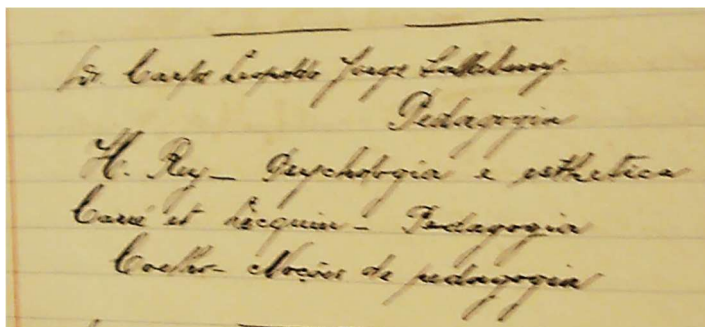 Dr. Carlos Leopoldo Jorge
Pedagogia
H. Rey – Psychologia e esthetica
Carré et Liquier – Pedagogia
Coelho – Noções de pedagogia